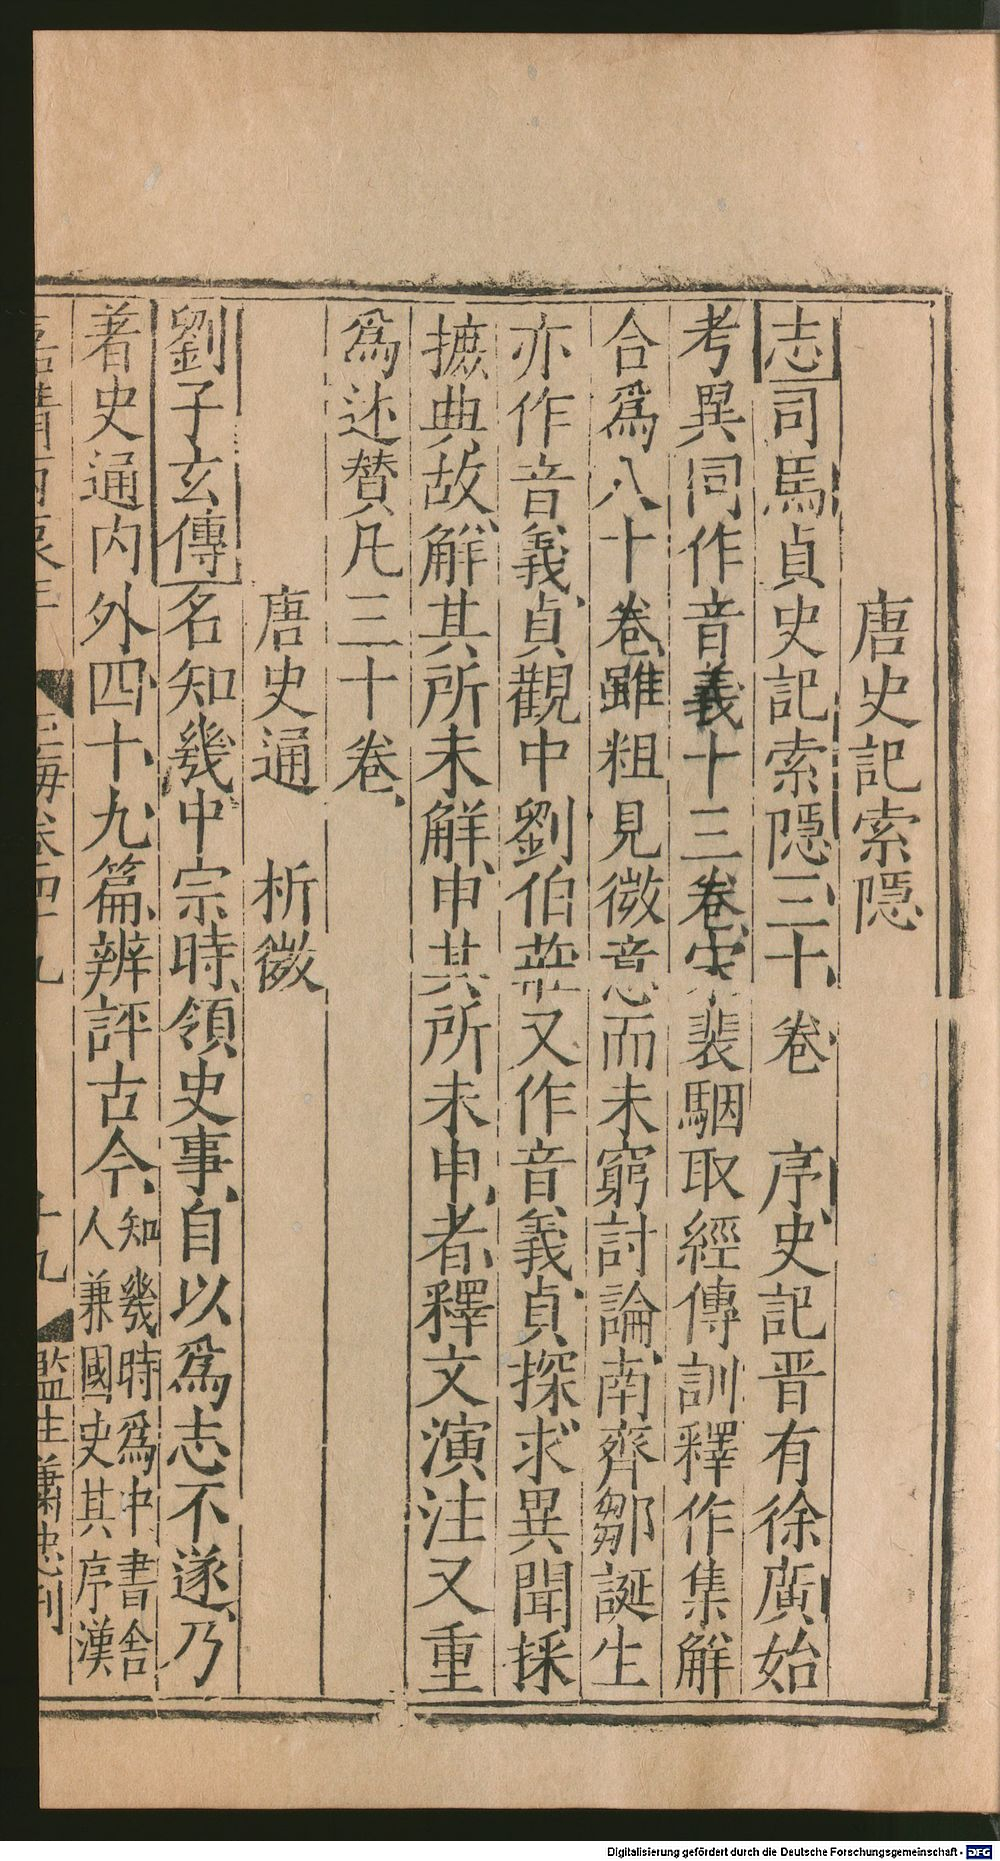 唐史記索隱
志司馬貞史記索隱三十卷　序史記晉有徐廣始
考異同作音義十三卷宋裴駰取經傳訓釋作集解
合爲八十卷雖粗見微意而未窮討論南齊鄒誕生
亦作音義貞觀中劉伯莊又作音義貞探求異聞採
摭典故解其所未解申其所未申者釋文演注又重
爲述贊凡三十卷
唐史通　析微
劉子玄傳名知幾中宗時領史事自以爲志不遂乃
著史通内外四十九篇辨評古今知幾時爲中書舍
人兼國史其序漢
嘉靖丙辰年　玉海卷四十九　十九　監生蕭忠刊
Digitalisierung gefördert durch die Deutsche Forschungsgemeinschaft - DFG